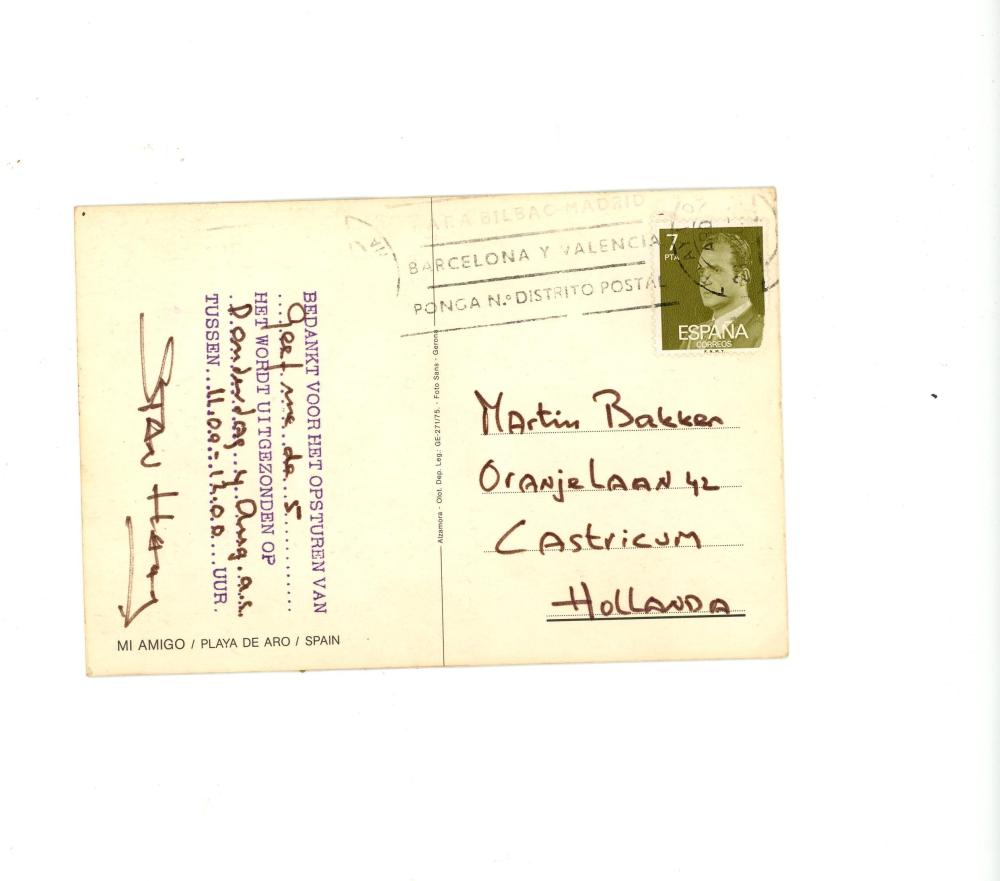 PARA BILBAO MADRID
BARCELONA Y VALENCIA
PONGA N.º DISTRITO POSTAL
7
PTA
ESPAÑA
CORREOS
F.N.M.T.
BEDANKT VOOR HET OPSTUREN VAN
Geef me de 5
HET WORDT UITGEZONDEN OP
Donderdag 4 Aug. a.s.
TUSSEN...11.00-12.00...UUR.
STAN HAAG
MI AMIGO / PLAYA DE ARO / SPAIN
Alzamora - Olot. Dep. Leg.: GE-271/75. - Foto Sans - Gerona
Martin Bakker
Oranjelaan 42
Castricum
Hollanda